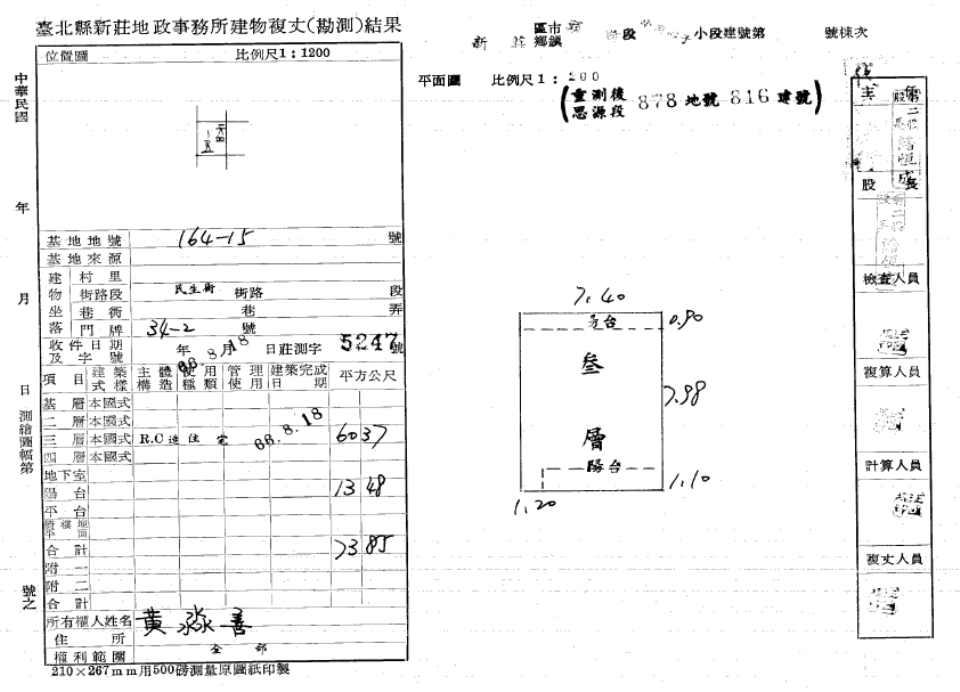 臺北縣新莊地政事務所建物複丈(勘測)結果
位置圖 比例尺1：1200
中華民國 年 月 日 測繪圖幅第 號之
基地地號 164-15 號
基地來源
建物坐落
村里
街路段 民生街 街路 段
巷衖 巷 弄
門牌 34-2 號
收件日期及字號 年 68.8.18 月 日莊測字 5247 號
項目 建築式樣 主體構造 使用種類 管理使用 建築完成日期 平方公尺
基層 本國式
二層 本國式
三層 本國式 R.C造 住宅 68.8.18 60 37
四層 本國式
地下室
陽台 13 48
平台
合計 73 85
附一
附二
合計
所有權人姓名 黃淼善
住所
權利範圍 全部
210×267mm用500磅測量原圖紙印製
新莊 區市鄉鎮 段 小段建號第 號棟次
平面圖 比例尺1：200
(重測後 思源段 878 地號 816 建號)
7.40
陽台 0.90
叁層
7.98
陽台
1.10
1.20
主任
股長
檢查人員
複算人員
計算人員
複丈人員